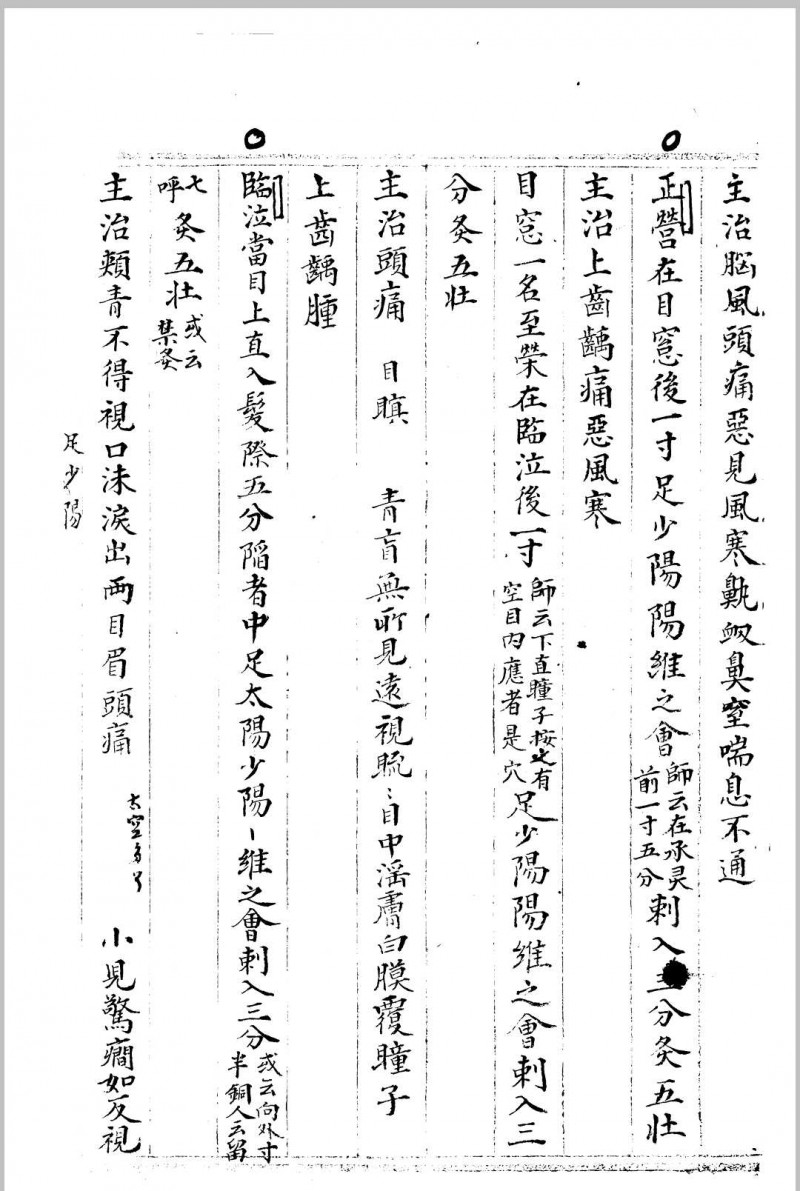 主治脳風頭痛惡見風寒鼽衂鼻窒喘息不通
正營在目窓後一寸足少陽陽維之會師云在承灵前一寸五分刺入三分灸五壮
主治上齒齲痛惡風寒
目窓一名至榮在臨泣後一寸師云下直瞳子按之有空目内應者是穴足少陽陽維之會刺入三
分灸五壮
主治頭痛 目瞑 青盲無所見遠視䀮〻目中淫膚白膜覆瞳子
上歯齲腫
臨泣當目上直入髮際五分陷者中足太陽少陽〻維之會刺入三分或云向外寸半銅人云留
七呼灸五壮或云禁灸
主治頬青不得視口沫淚出両目眉頭痛 小児驚癇如反視
足少陽